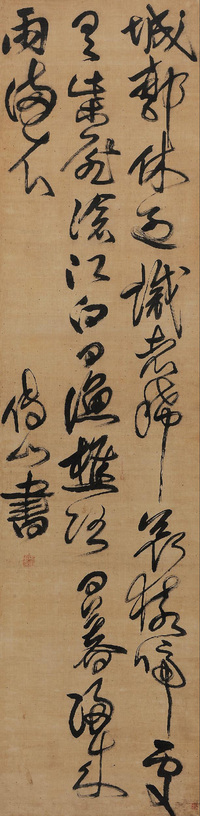 城郭休過識者稀哀猿啼處
見柴扉滄江白日漁樵路日暮歸來
雨滿衣
傅山書